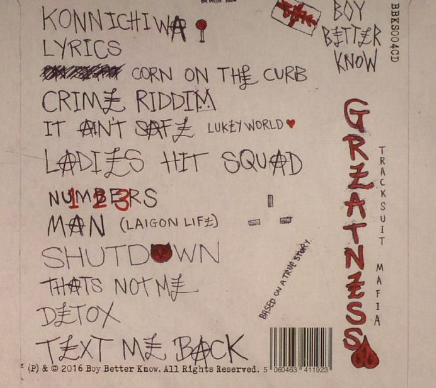 KONNICHIWA
LYRICS
CORN ON THE CURB
CRIME RIDDIM
IT AIN'T SAFE LUKEYWORLD
LADIES HIT SQUAD
NUMBERS
123
MAN (LAIGON LIFE)
SHUTDOWN
THATS NOT ME
DETOX
TEXT ME BACK
(P) & © 2016 Boy Better Know. All Rights Reserved.
5 060463 411923
BASED ON A TRUE STORY.
BOY
BETTER
KNOW
BBKS004CD
GREATNESS
TRACKSUIT MAFIA